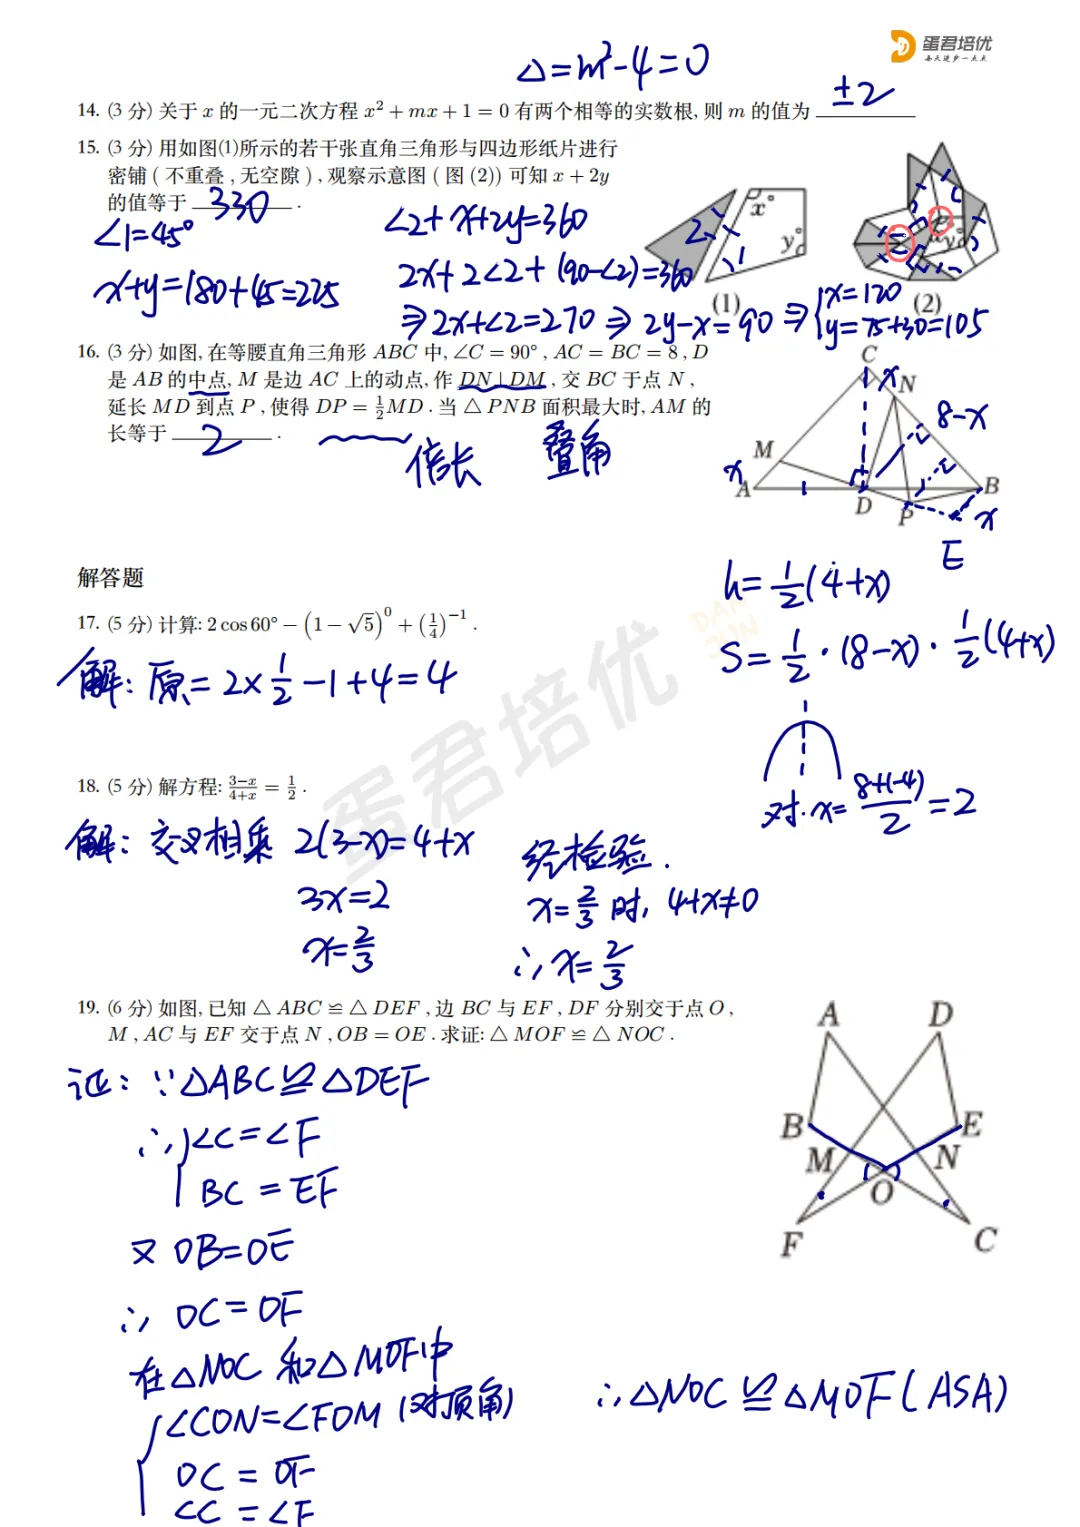 蛋君培优
每天进步一点点
Δ=m²-4=0
14. (3 分) 关于 x 的一元二次方程 x² + mx + 1 = 0 有两个相等的实数根, 则 m 的值为 ±2
15. (3 分) 用如图(1)所示的若干张直角三角形与四边形纸片进行
密铺 ( 不重叠 , 无空隙 ) , 观察示意图 ( 图 (2)) 可知 x + 2y
的值等于 330 .
∠1=45°
x+y=180+45=225
∠2+x+2y=360
2x+2∠2+(90-∠2)=360
⇒2x+∠2=270 ⇒ 2y-x=90 ⇒ {x=120
y=75+30=105
2 1 x° y°
(1)
y°
(2)
16. (3 分) 如图, 在等腰直角三角形 ABC 中, ∠C = 90° , AC = BC = 8 , D
是 AB 的中点, M 是边 AC 上的动点, 作 DN⊥DM , 交 BC 于点 N ,
延长 MD 到点 P , 使得 DP = ½MD . 当 △ PNB 面积最大时, AM 的
长等于 2 .
倍长 叠角
C
x N
8-x
M
x A D P B x
E
h=½(4+x)
S=½·(8-x)·½(4+x)
对·x=(8+(-4))/2=2
解答题
17. (5 分) 计算: 2 cos 60° − (1 − √5)⁰ + (¼)⁻¹ .
解: 原=2×½-1+4=4
18. (5 分) 解方程: (3−x)/(4+x) = ½ .
解: 交叉相乘 2(3-x)=4+x
3x=2
x=2/3
经检验.
x=2/3 时, 4+x≠0
∴x=2/3
蛋君培优
DAN JUN
19. (6 分) 如图, 已知 △ ABC ≌ △ DEF , 边 BC 与 EF , DF 分别交于点 O ,
M , AC 与 EF 交于点 N , OB = OE . 求证: △ MOF ≌ △ NOC .
A D
B E
M N
O
F C
证: ∵△ABC≌△DEF
∴{∠C=∠F
BC=EF
又 OB=OE
∴ OC=OF
在△NOC 和△MOF中
{∠CON=∠FOM (对顶角)
OC=OF
∠C=∠F
∴△NOC≌△MOF(ASA)